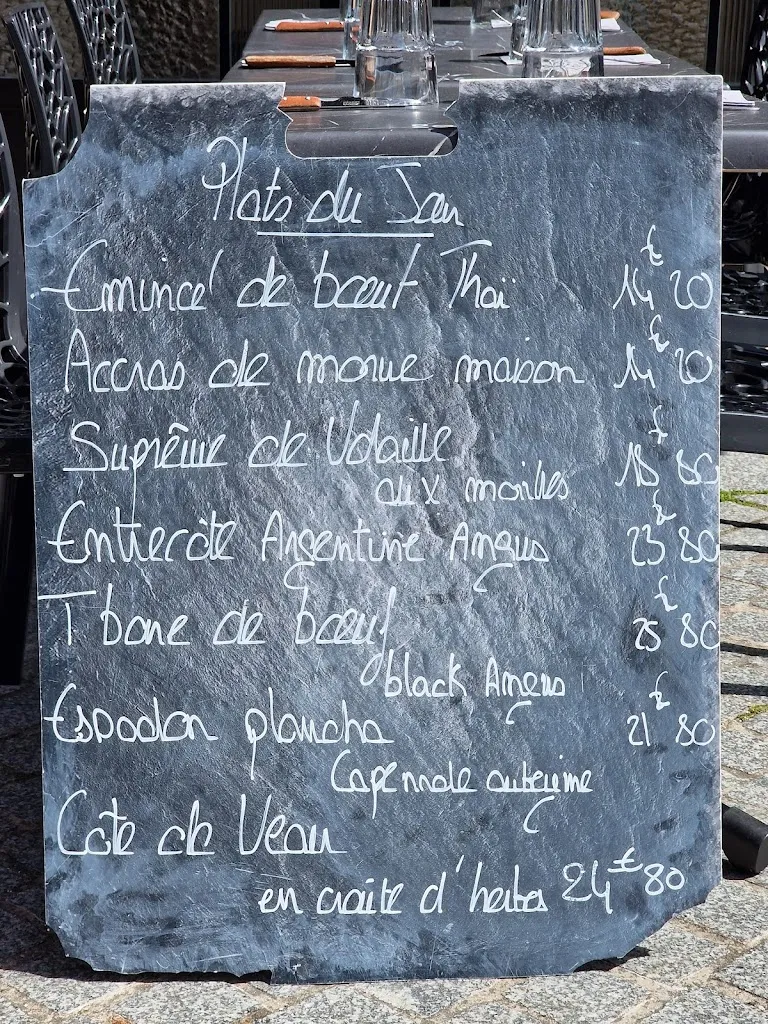 Plats du Jour
Emincé de bœuf Thaï 14€20
Accras de morue maison 14€20
Suprême de Volaille
aux morilles 18€80
Entrecôte Argentine Angus 23€80
T bone de bœuf 25€80
black Angus
Espadon plancha 21€80
Caponnade aubergine
Cote de Veau
en croûte d'herbes 24€80